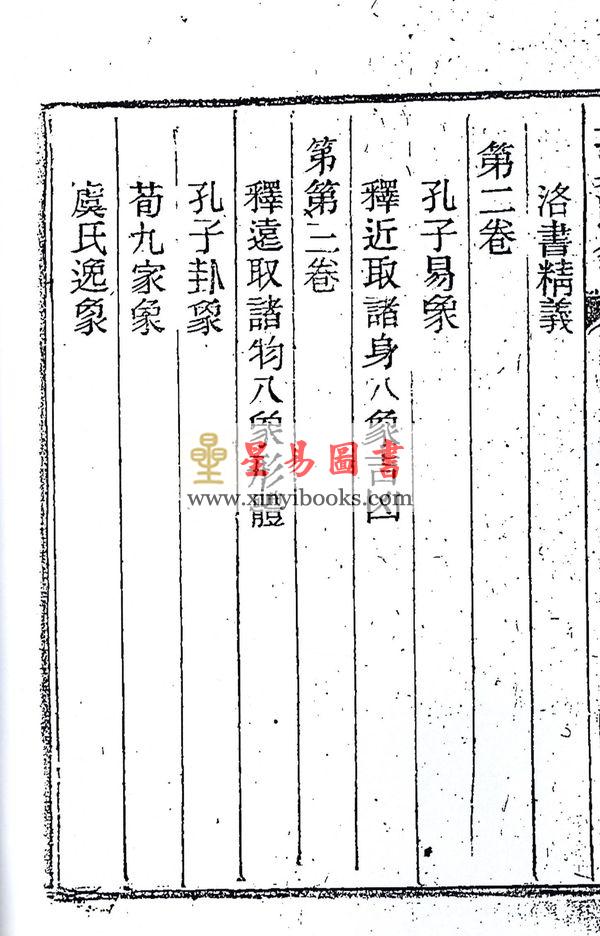 洛書精義
第二卷
孔子易象
釋近取諸身八象吉凶
第第三卷
釋遠取諸物八象形體
孔子卦象
荀九家象
虞氏逸象
星易圖書
www.xinyibooks.com